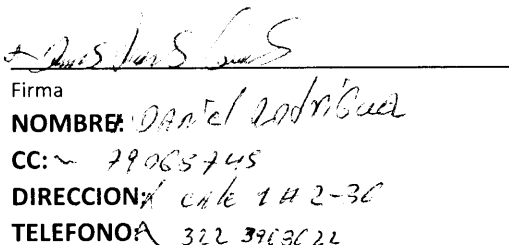 Firma
NOMBRE: Daniel Rodriguez
CC: 79068745
DIRECCION: calle 1 # 2-36
TELEFONO: 322 3963622